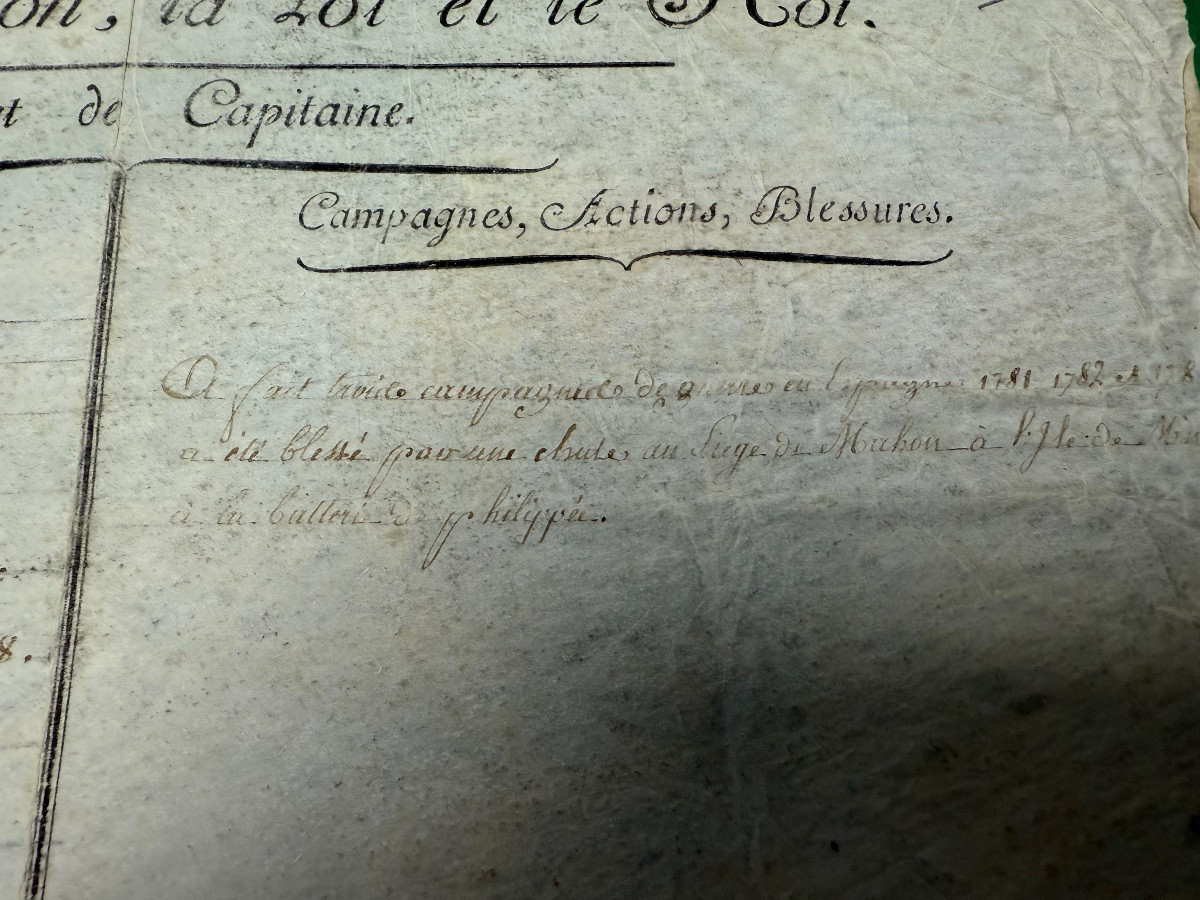 on, la Loi et le Roi.
t de Capitaine.
Campagnes, Actions, Blessures.
A fait trois campagnes de guerre en Espagne 1781 1782 et 178
a été blessé par une chute au Siege de Mahon à l'Jle de Min
à la batterie de philippée.
8.